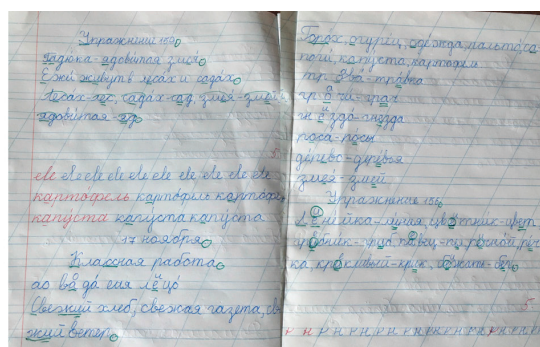 Упражнение 150.
Гадюка-ядовитая змея.
Ежи живут в лесах и садах.
Лесах-лес, садах-сад, змея-змеи,
ядовитая-яд.
ее ее ее ее ее ее ее ее
картофель картофель картофе
капуста капуста капуста
17 ноября.
Классная работа.
ао вода ея лицо
Свежий хлеб, свежая газета, све
жий ветер.
Горох, огурец, одежда, пальто, са
поги, капуста, картофель
трава-травка
грачи-грач
гнездо-гнезда
роса-росы
дерево-деревья
змея-змей
Упражнение 156.
Линейка-линия, цветник-цвет
грибник-гриб, певец-, речной, ре
ка, крикливый-крик, бежать-бег.
5
н н н н н н н н н н